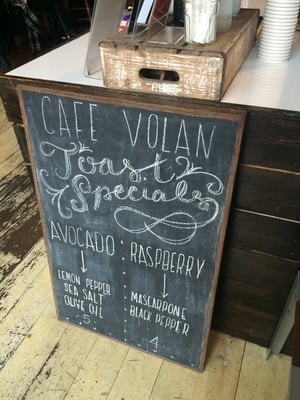 CAFE VOLAN
Toast
Specials
AVOCADO
LEMON PEPPER
SEA SALT
OLIVE OIL
5
RASPBERRY
MASCARPONE
BLACK PEPPER
4